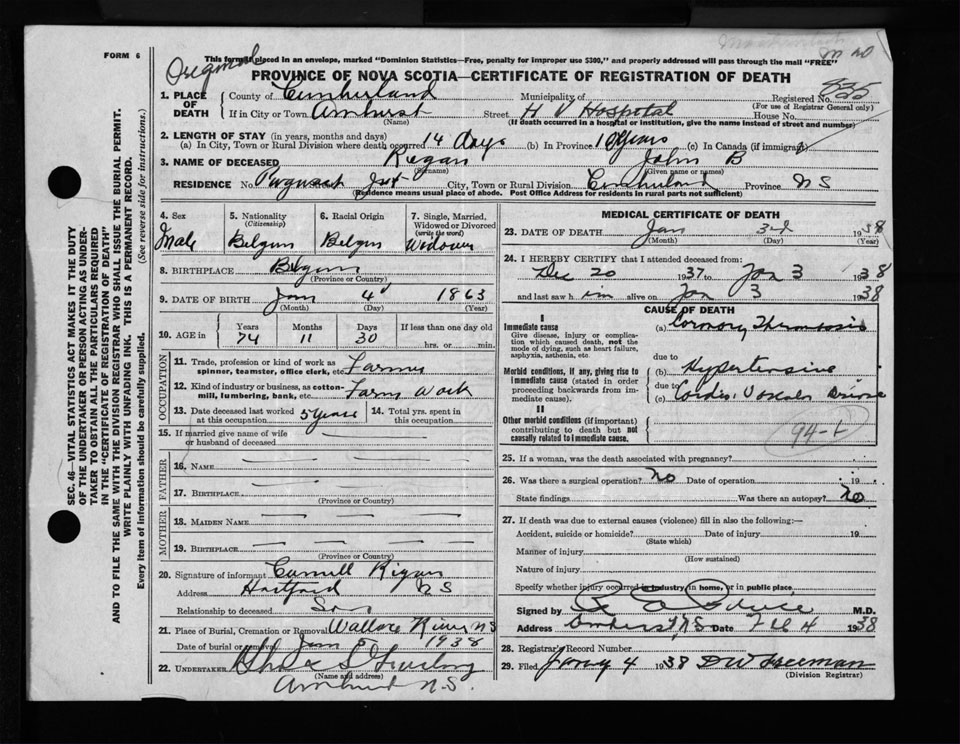 FORM 6
Original
This form if placed in an envelope, marked "Dominion Statistics—Free, penalty for improper use $300," and properly addressed will pass through the mail "FREE"
PROVINCE OF NOVA SCOTIA—CERTIFICATE OF REGISTRATION OF DEATH
1. PLACE OF DEATH
County of Cumberland Municipality of Registered No.
(For use of Registrar General only)
If in City or Town Amherst Street H V Hospital House No.
(Name) (If death occurred in a hospital or institution, give the name instead of street and number)
2. LENGTH OF STAY (in years, months and days)
(a) In City, Town or Rural Division where death occurred 14 days (b) In Province 10 years (c) In Canada (if immigrant)
3. NAME OF DECEASED Regan John B
(Surname) (Given name or names)
RESIDENCE No. City, Town or Rural Division Cumberland Province NS
(Residence means usual place of abode. Post Office Address for residents in rural parts not sufficient)
4. Sex
Male
5. Nationality
(Citizenship)
Belgum
6. Racial Origin
Belgum
7. Single, Married, Widowed or Divorced
(write the word)
Widower
8. BIRTHPLACE Belgum
(Province or Country)
9. DATE OF BIRTH Jan 4 1863
(Month) (Day) (Year)
10. AGE in Years Months Days If less than one day old
74 11 30 hrs. or min.
OCCUPATION
11. Trade, profession or kind of work as spinner, teamster, office clerk, etc. Farmer
12. Kind of industry or business, as cotton-mill, lumbering, bank, etc. Farm Work
13. Date deceased last worked at this occupation 5 years
14. Total yrs. spent in this occupation
15. If married give name of wife or husband of deceased
FATHER
16. NAME
17. BIRTHPLACE
(Province or Country)
MOTHER
18. MAIDEN NAME
19. BIRTHPLACE
(Province or Country)
20. Signature of informant Regan
Address Hartford NS
Relationship to deceased Son
21. Place of Burial, Cremation or Removal Wallace River NS
Date of burial or Jan 5 1938
22. UNDERTAKER
(Name and address)
Amherst N.S.
MEDICAL CERTIFICATE OF DEATH
23. DATE OF DEATH Jan 3rd 1938
(Month) (Day) (Year)
24. I HEREBY CERTIFY that I attended deceased from:
Dec 20 1937 to Jan 3 1938
and last saw him alive on Jan 3 1938
CAUSE OF DEATH
I
Immediate cause
Give disease, injury or complication which caused death, not the mode of dying, such as heart failure, asphyxia, asthenia, etc.
(a) Coronary Thrombosis
Morbid conditions, if any, giving rise to immediate cause (stated in order proceeding backwards from immediate cause).
due to
(b) Hypertensive
due to
(c) Cardio Vascular Disease
II
Other morbid conditions (if important) contributing to death but not causally related to immediate cause.
25. If a woman, was the death associated with pregnancy?
26. Was there a surgical operation? no Date of operation 19
State findings Was there an autopsy? no
27. If death was due to external causes (violence) fill in also the following:—
Accident, suicide or homicide? Date of injury 19
(State which)
Manner of injury
(How sustained)
Nature of injury
Specify whether injury occurred in industry, in home, or in public place
Signed by M.D.
Address Amherst N.S. Date Feb 4 1938
28. Registrar's Record Number
29. Filed Jany 4 1938 DW Freeman
(Division Registrar)
SEC. 46—VITAL STATISTICS ACT MAKES IT THE DUTY OF THE UNDERTAKER OR PERSON ACTING AS UNDERTAKER TO OBTAIN ALL THE PARTICULARS REQUIRED IN THE "CERTIFICATE OF REGISTRATION OF DEATH" AND TO FILE THE SAME WITH THE DIVISION REGISTRAR WHO SHALL ISSUE THE BURIAL PERMIT.
WRITE PLAINLY WITH UNFADING INK. THIS IS A PERMANENT RECORD.
Every item of information should be carefully supplied. (See reverse side for instructions.)